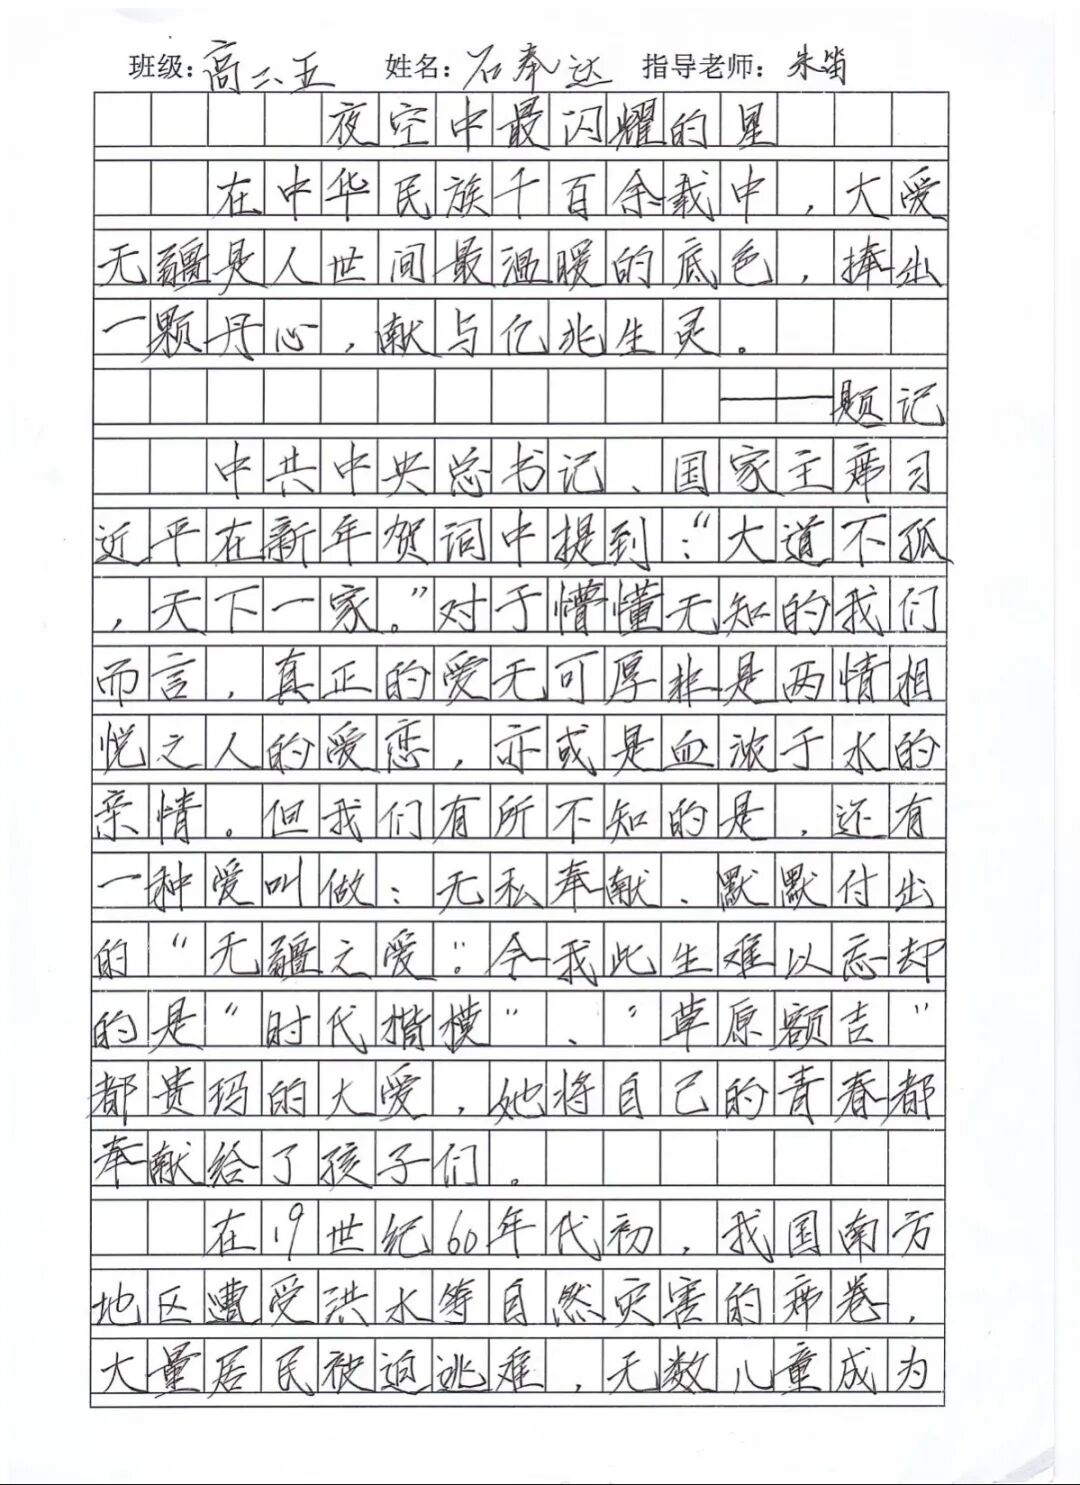 班级：高二五 姓名：石奉达 指导老师：朱笛
夜空中最闪耀的星
在中华民族千百余载中，大爱
无疆是人世间最温暖的底色，捧出
一颗丹心，献与亿兆生灵。
——题记
中共中央总书记、国家主席习
近平在新年贺词中提到：“大道不孤
，天下一家。”对于懵懂无知的我们
而言，真正的爱无可厚非是两情相
悦之人的爱恋，亦或是血浓于水的
亲情。但我们有所不知的是，还有
一种爱叫做：无私奉献、默默付出
的“无疆之爱”：令我此生难以忘却
的是“时代楷模”、“草原额吉”
都贵玛的大爱，她将自己的青春都
奉献给了孩子们。
在19世纪60年代初，我国南方
地区遭受洪水等自然灾害的席卷，
大量居民被迫逃难，无数儿童成为